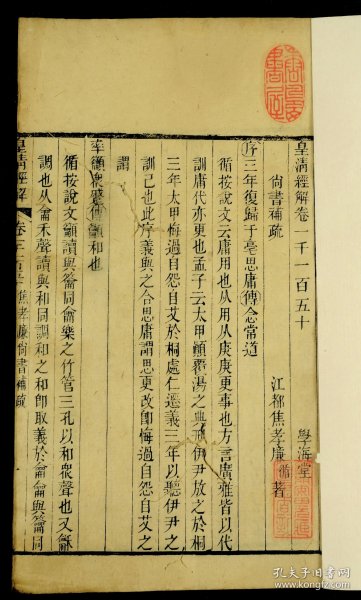 皇清經解卷一千一百五十
學海堂
尙書補疏
江都焦孝廉循著
序三年復歸于亳思庸傳念常道
循按說文云庸用也从用从庚庚更事也方言廣雅皆以代
訓庸代亦更也孟子云太甲顚覆湯之典刑伊尹放之於桐
三年太甲悔過自怨自艾於桐處仁遷義三年以聽伊尹之
訓己也此序義與之合思庸謂思更改卽悔過自怨自艾之
謂
率籲衆慼傳籲和也
循按說文籲讀與籥同籥樂之竹管三孔以和衆聲也又龢
調也从龠禾聲讀與和同調和之和卽取義於龠龠與籥同
皇淸經解
焦孝廉尙書補疏
孔夫子旧书网
www.kongfz.com